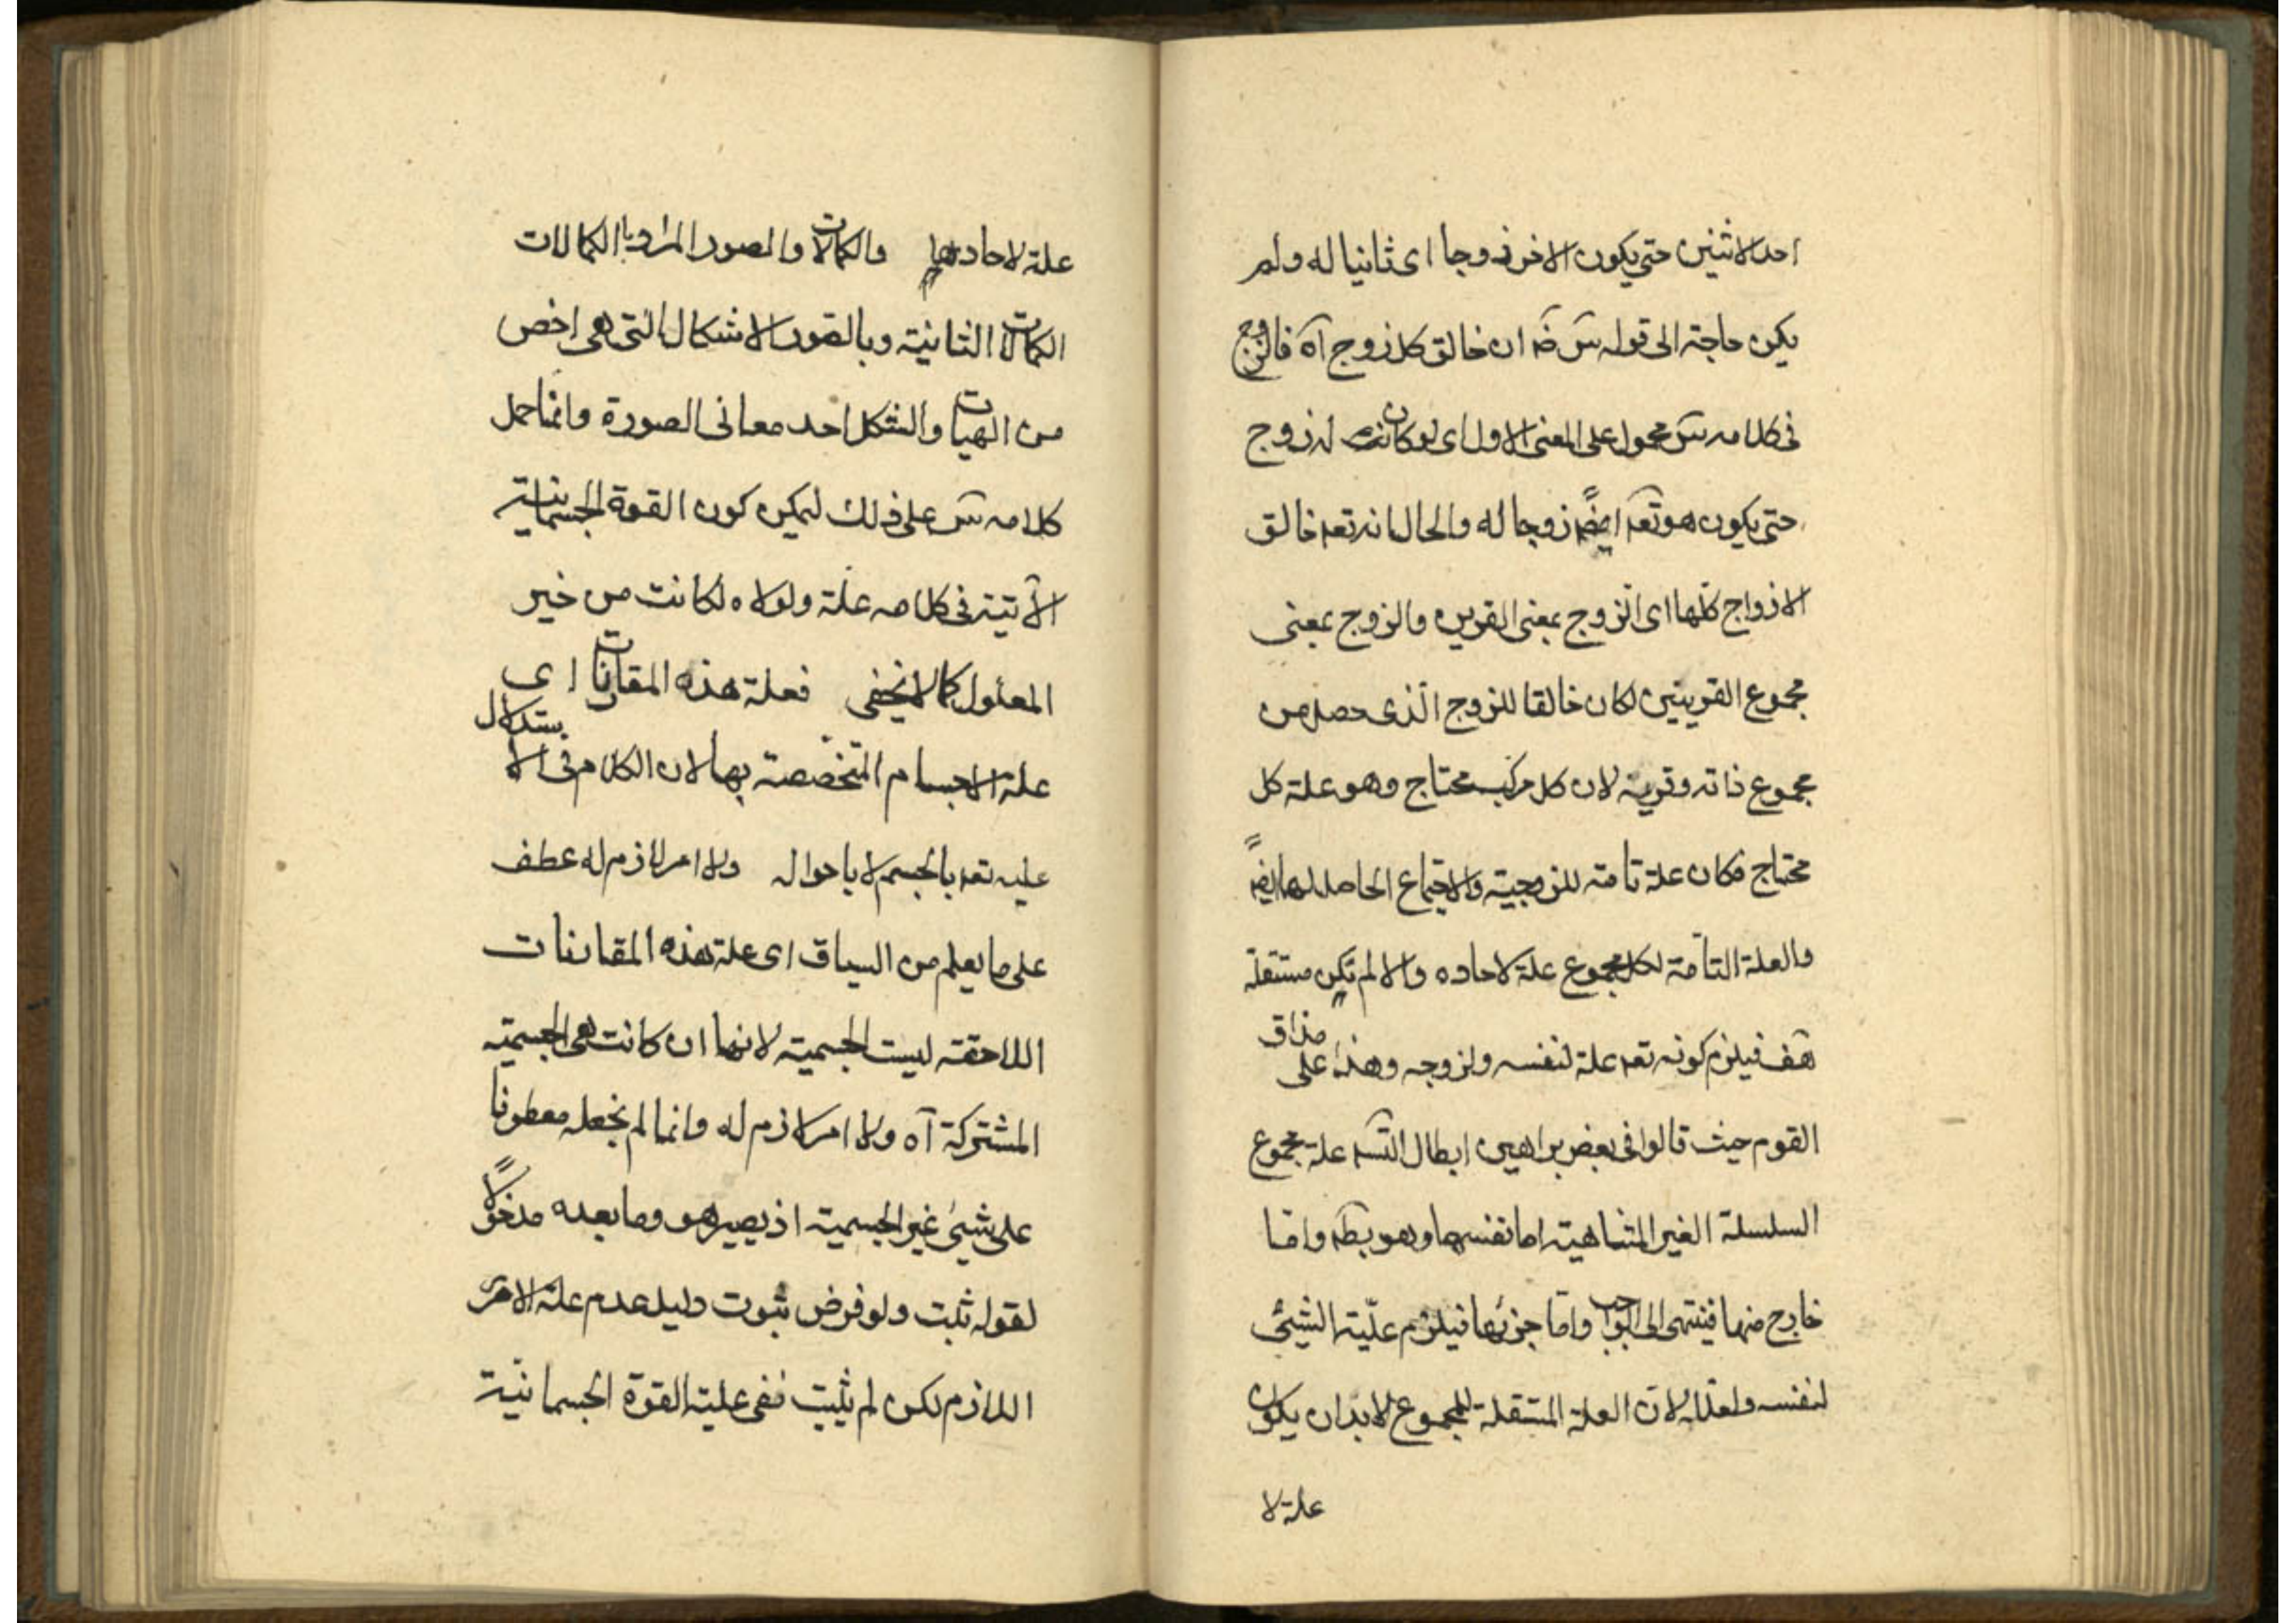 احد الاثنين حتى يكون الاخر زوجا اى ثانيا له ولم
يكن حاجة الى قوله س ضه ان خالق كل زوج آه فالزوج
فى كلامه س محمول على المعنى الاول اى لو كان له زوج
حتى يكون هو تعه ايضاً زوجا له والحال انه تعه خالق
الازواج كلّها اى الزوج بمعنى القرين والزوج بمعنى
مجموع القرينين لكان خالقا للزوج الّذى حصل من
مجموع ذاته وقرينه لان كل مركب محتاج وهو علة كل
محتاج فكان علة تامة للزوجية والاجتماع الحاصل لهما ايضاً
والعلة التامّة لكل مجموع علة لاحاده والا لم تكن مستقلة
هف فيلزم كونه تعه علة لنفسه ولزوجه وهذا على مذاق
القوم حيث قالوا فى بعض براهين ابطال التسه علة مجموع
السلسلة الغير المتناهية اما نفسها وهو بطه وامّا
خارج منها فينتهى الى الواجب وامّا جزئها فيلزم علّية الشيئ
لنفسه ولعلله لانّ العلة المستقلة للمجموع لابد ان يكون
علة لا
علة لاحادها والكمالات والصور المراد بالكمالات
الكمالات الثانية وبالصور الاشكال التى هى اخص
من الهيات والشكل احد معانى الصورة وانما حمل
كلامه س على ذلك ليمكن كون القوة الجسمانية
الآتية فى كلامه علة ولولاه لكانت من خير
المعلول كما لا يخفى فعلة هذه المقارنات اى
علة الاجسام المتخصصة بها لان الكلام فى الاستدلال
عليه تعه بالجسم لا باحواله ولا امر لازم له عطف
على ما يعلم من السياق اى علة هذه المقارنات
اللاحقة ليست الجسمية لانها ان كانت هى الجسمية
المشتركة آه ولا امر لازم له وانما لم نجعله معطوفا
على شيئ غير الجسمية اذ يصير هو وما بعده مدخولاً
لقوله ثبت ولو فرض ثبوت دليل عدم علة الامر
اللازم لكن لم يثبت نفى علية القوة الجسمانية